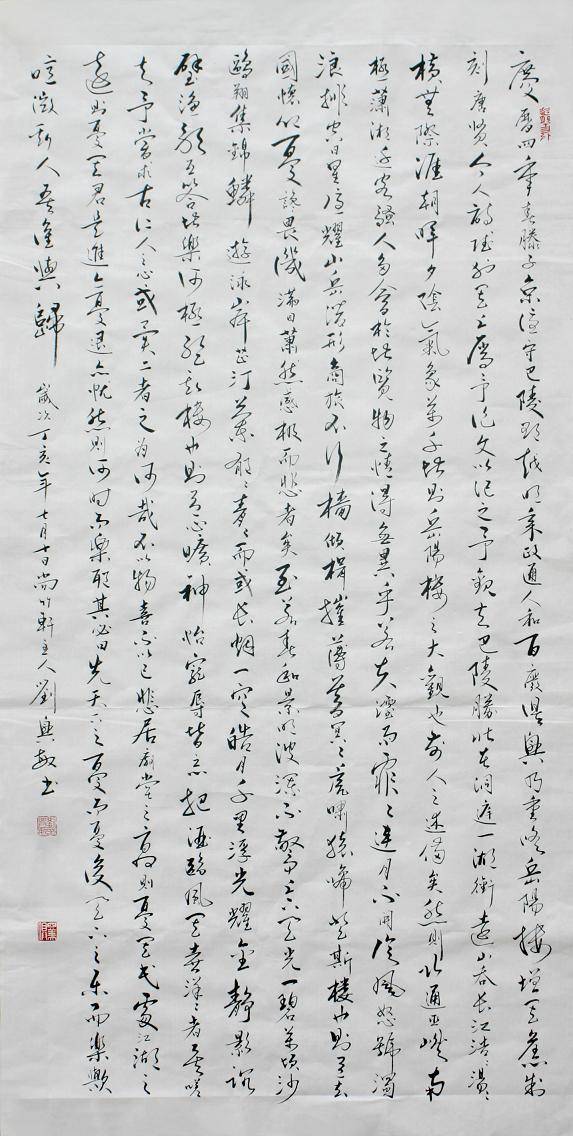 慶曆四年春滕子京謫守巴陵郡越明年政通人和百廢俱興乃重修岳陽樓增其舊制
刻唐賢今人詩賦於其上屬予作文以記之予觀夫巴陵勝狀在洞庭一湖銜遠山吞長江浩浩湯湯
橫無際涯朝暉夕陰氣象萬千此則岳陽樓之大觀也前人之述備矣然則北通巫峽南
極瀟湘遷客騷人多會於此覽物之情得無異乎若夫霪雨霏霏連月不開陰風怒號濁
浪排空日星隱耀山岳潛形商旅不行檣傾楫摧薄暮冥冥虎嘯猿啼登斯樓也則有去
國懷鄉憂讒畏譏滿目蕭然感極而悲者矣至若春和景明波瀾不驚上下天光一碧萬頃沙
鷗翔集錦鱗遊泳岸芷汀蘭郁郁青青而或長煙一空皓月千里浮光耀金靜影沉
璧漁歌互答此樂何極登斯樓也則有心曠神怡寵辱皆忘把酒臨風其喜洋洋者矣嗟
夫予嘗求古仁人之心或異二者之為何哉不以物喜不以己悲居廟堂之高則憂其民處江湖之
遠則憂其君是進亦憂退亦憂然則何時而樂耶其必曰先天下之憂而憂後天下之樂而樂歟
噫微斯人吾誰與歸 歲次丁亥年七月十日尚竹軒主人劉興敏書